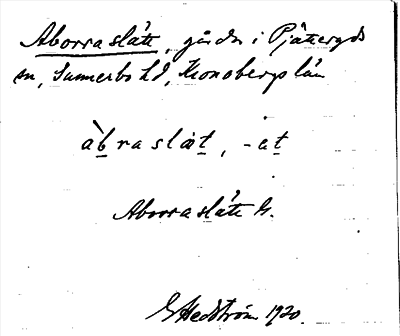 Aborraslätt, gårdar i Pjätteryds
sn, Sunnerbo hd, Kronobergs län
àbraslæt, -et
Aborraslätt G.
G Hedström 1920.